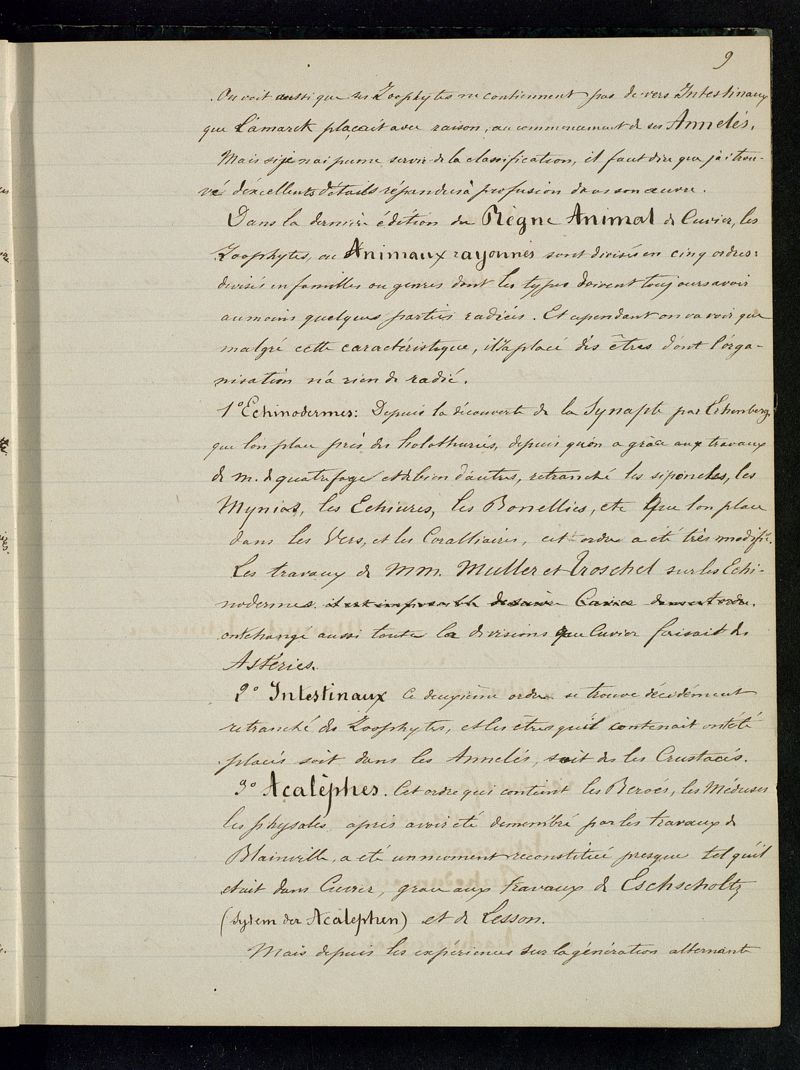 9
On voit aussi que ses Zoophytes ne contiennent pas de vers Intestinaux
que Lamarck plaçait avec raison, au commencement de ses Annelés,
Mais si je n'ai pu me servir de la classification, il faut dire que j'ai trou-
vé d'excellents détails répandus à profusion dans son œuvre.
Dans la dernière édition du Règne Animal de Cuvier, les
Zoophytes, ou Animaux rayonnés sont divisés en cinq ordres:
divisés en familles ou genres dont les types doivent toujours avoir
au moins quelques parties radiées. Et cependant on va voir que
malgré cette caractéristique, il a placé des êtres dont l'orga-
nisation n'a rien de radié.
1º Echinodermes: Depuis la découverte de la Synapte par Erhenberg,
que l'on place près des holothuries, depuis qu'on a grâce aux travaux
de M. de quatrefage et de bien d'autres, retranché les siponcles, les
Mynias, les Echiures, les Bonellies, etc que l'on place
dans les Vers, et les Coralliaires, cet ordre a été très modifié.
Les travaux de MM. Muller et Troschel sur les Echi-
nodermes. il est impossible de suivre Cuvier dans cet ordre.
ont changé aussi toute la divisions que Cuvier faisait des
Astéries.
2º Intestinaux Ce deuxième ordre se trouve décidément
retranché des Zoophytes, et les êtres qu'il contenait ont été
placés soit dans les Annelés, soit ds les Crustacés.
3º Acalèphes. Cet ordre qui contient les Beroés, les Méduses
les physales, après avoir été démembré par les travaux de
Blainville, a été un moment reconstitué presque tel qu'il
était dans Cuvier, grace aux travaux de Eschscholtz
(System der Acalephen) et de Lesson.
Mais depuis les expériences sur la génération alternante